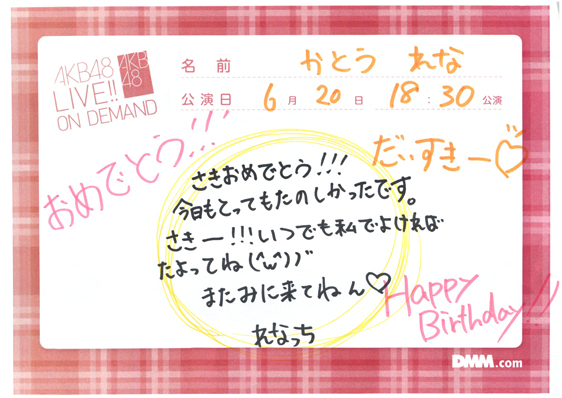 AKB48
LIVE!!
ON DEMAND
AKB
48
名前 かとう れな
公演日 6月20日 18:30公演
おめでとう!!!
だいすきー♡
さきおめでとう!!!
今日もとってもたのしかったです。
さきー!!!いつでも私でよければ
たよってね(^ω^))"
またみに来てねん♡
れなっち
Happy
Birthday!!
DMM.com